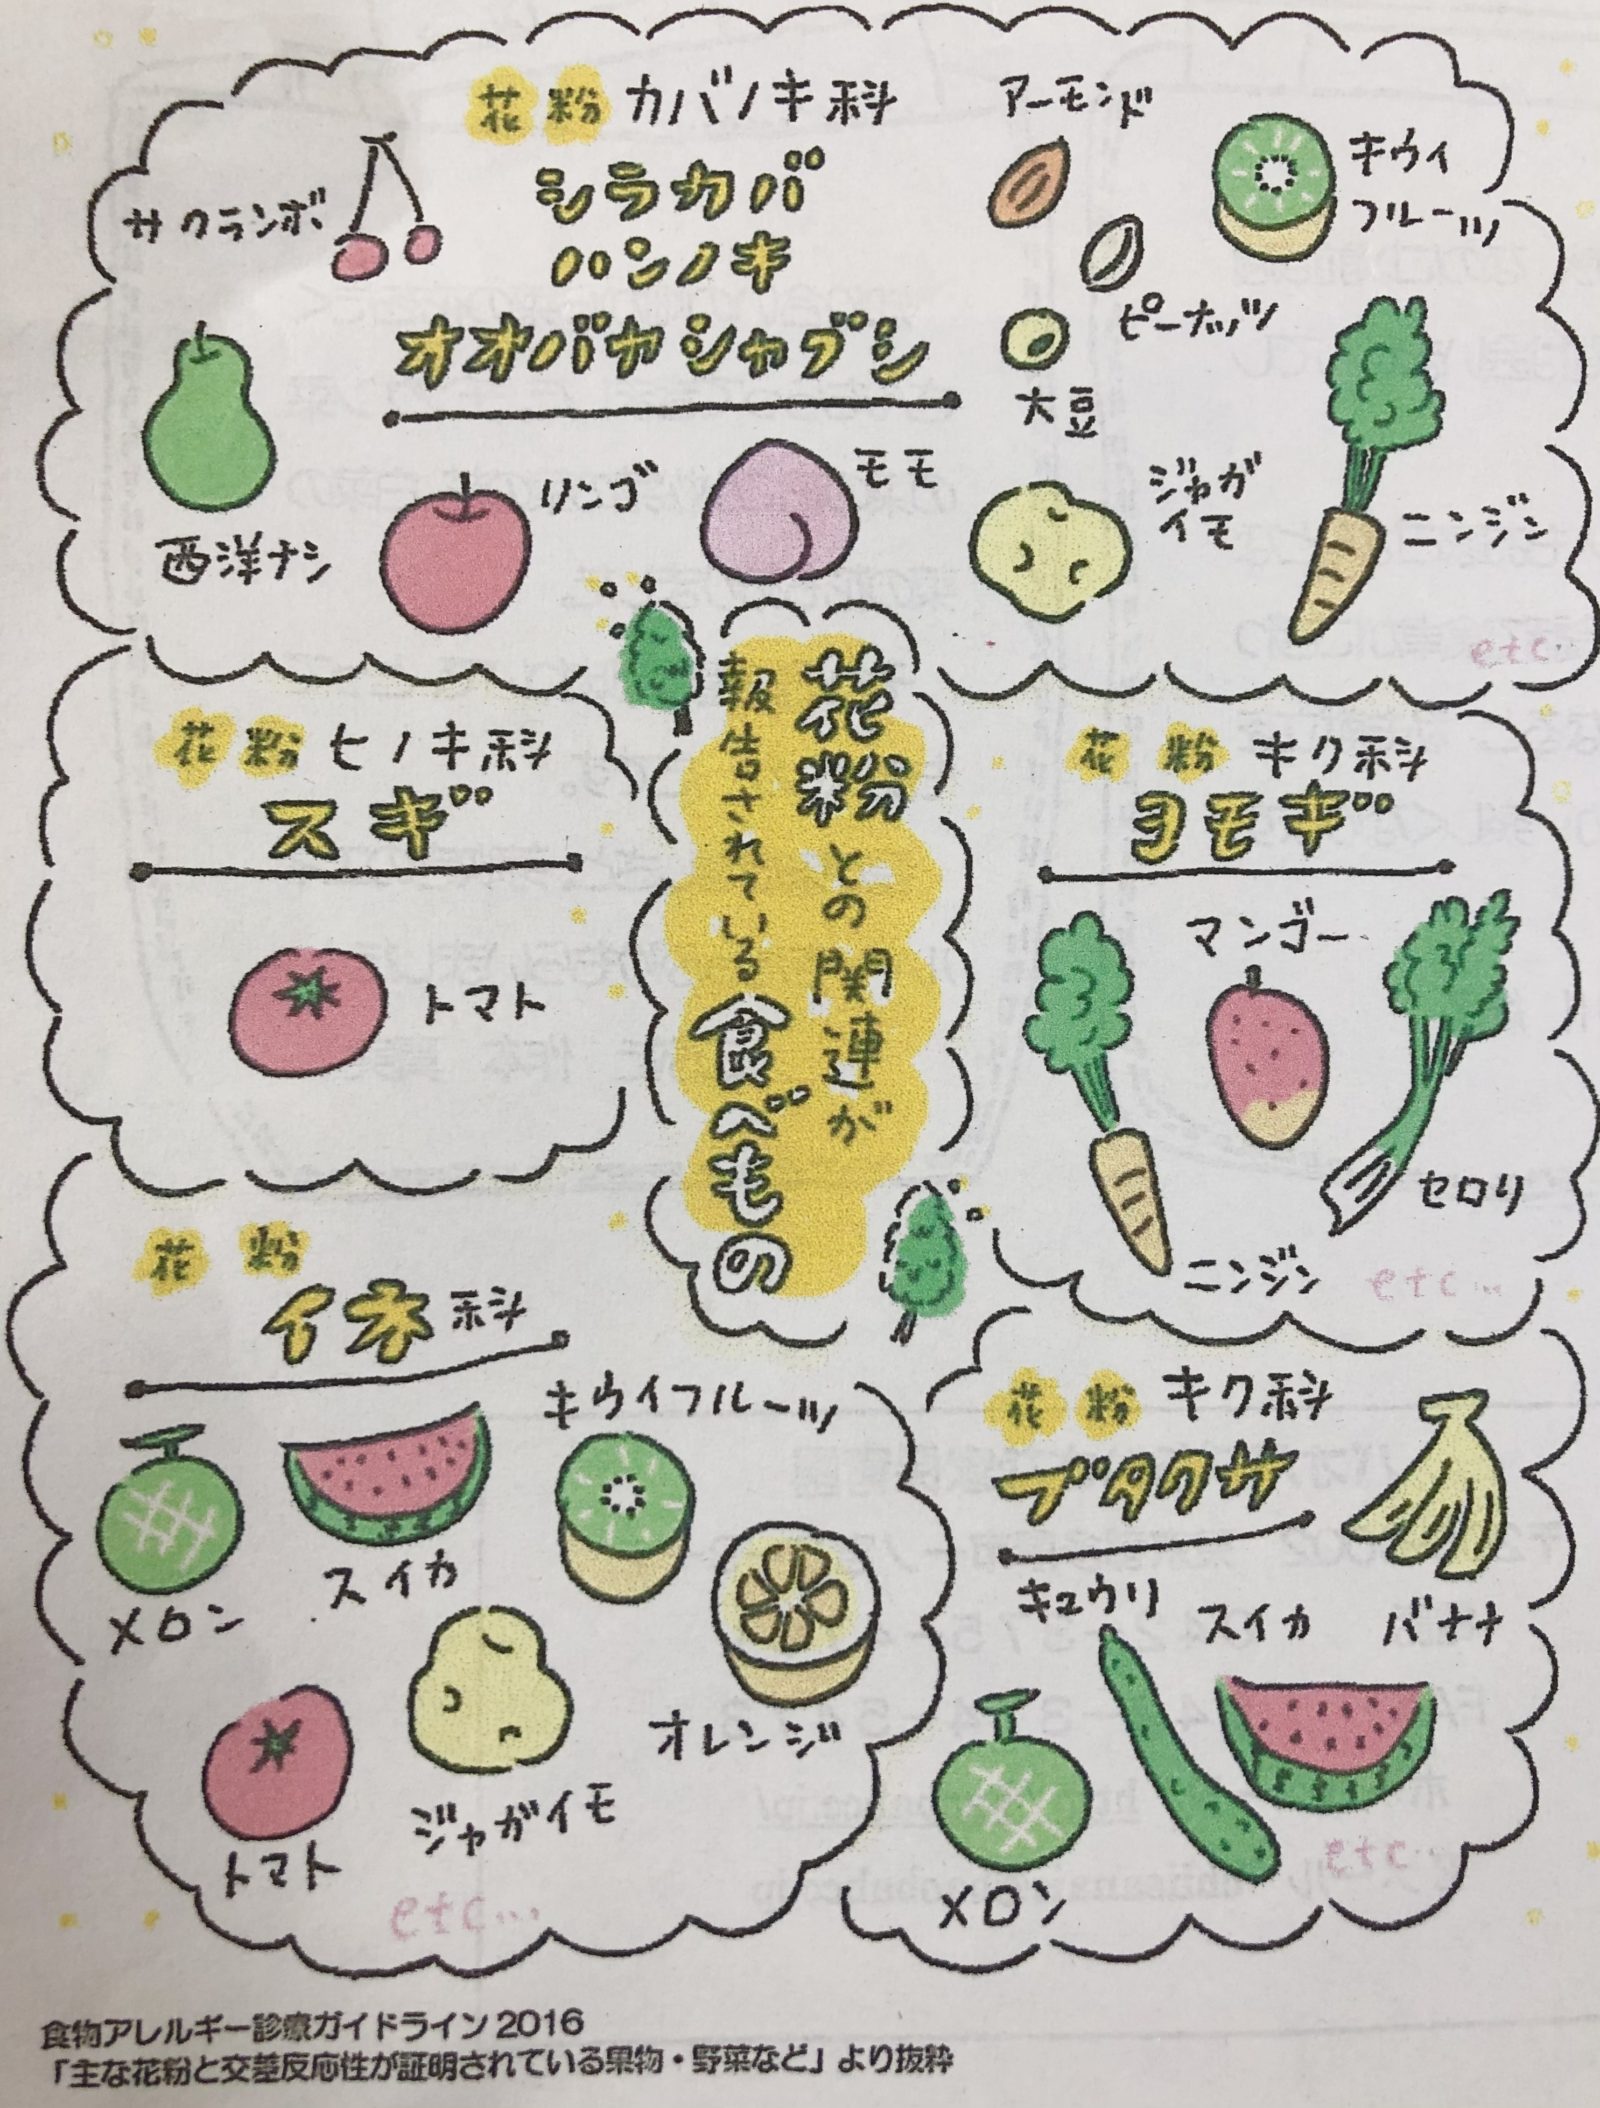 花粉 カバノキ科
シラカバ
ハンノキ
オオバヤシャブシ
サクランボ
アーモンド
キウイ
フルーツ
ピーナッツ
大豆
西洋ナシ
リンゴ
モモ
ジャガ
イモ
ニンジン
etc…
花粉との関連が
報告されている食べもの
花粉 ヒノキ科
スギ
トマト
花粉 キク科
ヨモギ
マンゴー
セロリ
ニンジン
etc…
花粉
イネ科
キウイフルーツ
メロン
スイカ
オレンジ
ジャガイモ
トマト
etc…
花粉 キク科
ブタクサ
キュウリ
スイカ
バナナ
メロン
etc…
食物アレルギー診療ガイドライン2016
「主な花粉と交差反応性が証明されている果物・野菜など」より抜粋